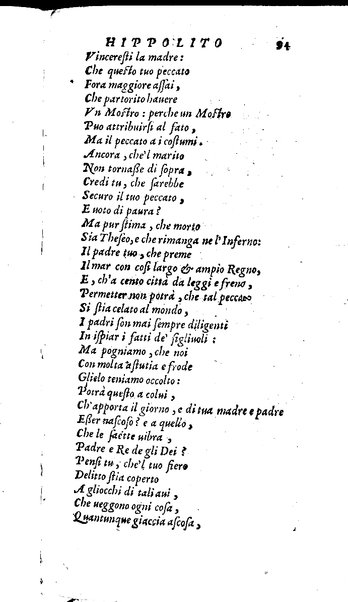 HIPPOLITO 94
Vinceresti la madre:
Che questo tuo peccato
Fora maggiore assai,
Che partorito havere
Vn Mostro: perche un Mostro
Puo attribuirsi al fato,
Ma il peccato a i costumi.
Ancora, che'l marito
Non tornasse di sopra,
Credi tu, che sarebbe
Securo il tuo peccato,
E uoto di paura?
Ma pur stima, che morto
Sia Theseo, e che rimanga ne l'Inferno:
Il padre tuo, che preme
Il mar con così largo & ampio Regno,
E, ch'a cento città da leggi e freno,
Permetter non potrà, che tal peccato
Si stia celato al mondo,
I padri son mai sempre diligenti
In ispiar i fatti de' figliuoli:
Ma pogniamo, che noi
Con molta astutia e frode
Glielo teniamo occolto:
Potrà questo a colui,
Ch'apporta il giorno, e di tua madre e padre
Esser nascoso? e a quello,
Che le saette uibra,
Padre e Re de gli Dei?
Pensi tu, che'l tuo fiero
Delitto stia coperto
A gliocchi di tali aui,
Che ueggono ogni cosa,
Quantunque giaccia ascosa,